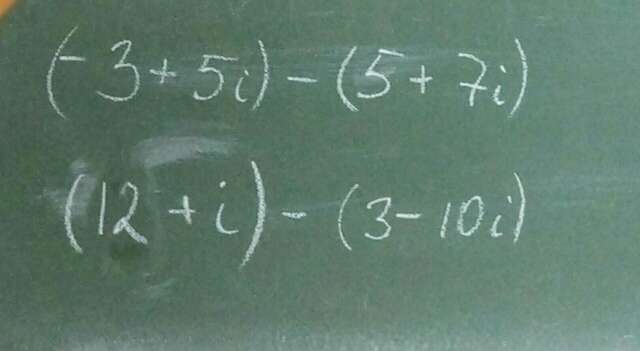 (-3+5i)-(5+7i)
(12+i)-(3-10i)